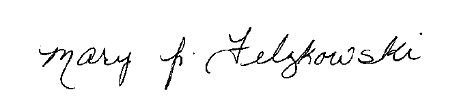 Mary J. Felzkowski